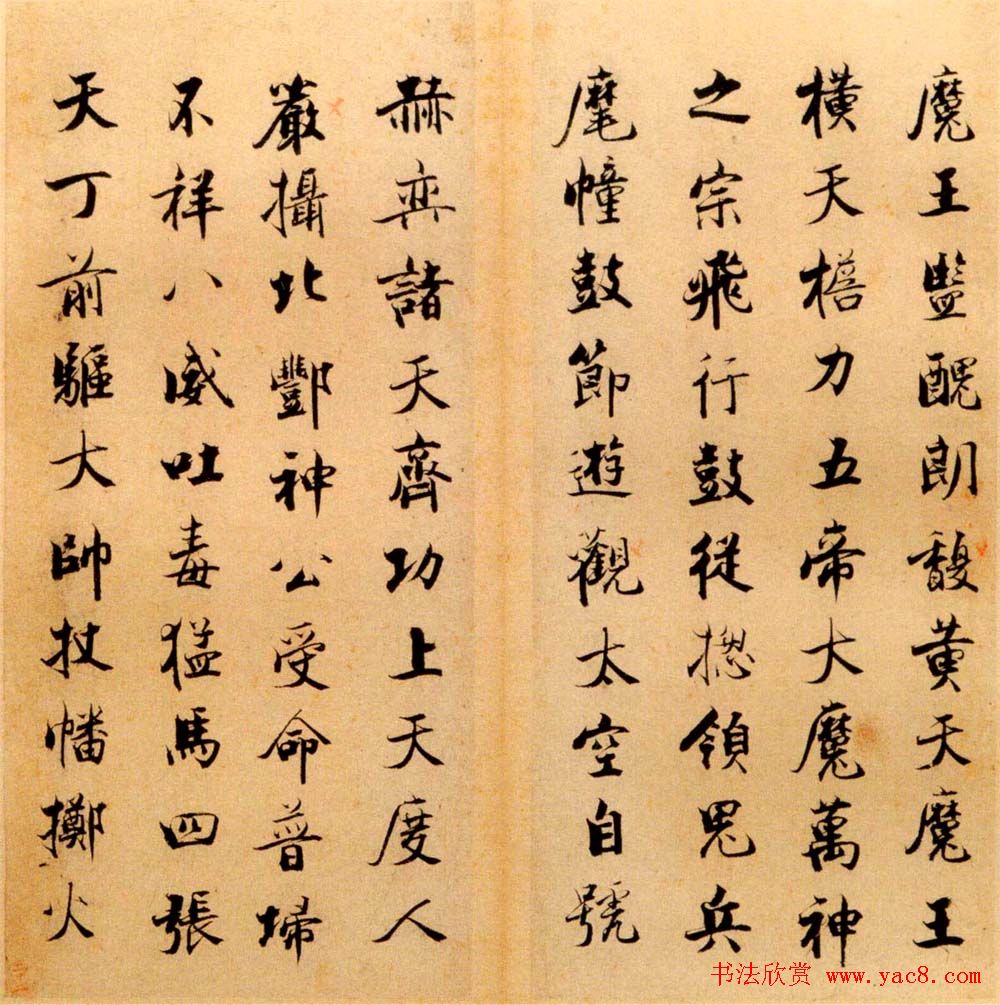 魔王監醜朗馥黄天魔王
橫天檐力五帝大魔萬神
之宗飛行鼓從揔領鬼兵
麾幢鼓節遊觀太空自號
赫奕諸天齊功上天度人
嚴攝北酆神公受命普掃
不祥八威吐毒猛馬四張
天丁前驅大帥杖幡擲火
书法欣赏 www.yac8.com